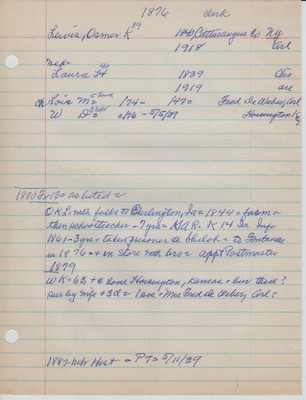 1876 clerk
Lewis, Osmer K 39 1841 Cattaraugus Co NY
1918 Arl
wife
Laura H 40 1839 Ohio
1919 Arl
ch Lois M = 1874- 1947= Fred De Weber, Arl
W D = 1876 - 5/5/39 Hoisington
1880 Fr Bo as listed =
OKL with folks to Burlington, Ia = 1844 = farm =
then schoolteacher - 7 yrs = GAR. K 14 Ia Inf
1861-3 yrs = taken prisoner at Shiloh = to Fontanelle
in 1876 = + in store with bro = appt Postmaster
1879
W K = 63, + @ home Hoisington, Kansas = bur there?
sur by wife + 3d = 1 son = Mrs Fred De Weber, Arl?
1882 Nebr Hist = PT = 5/11/39